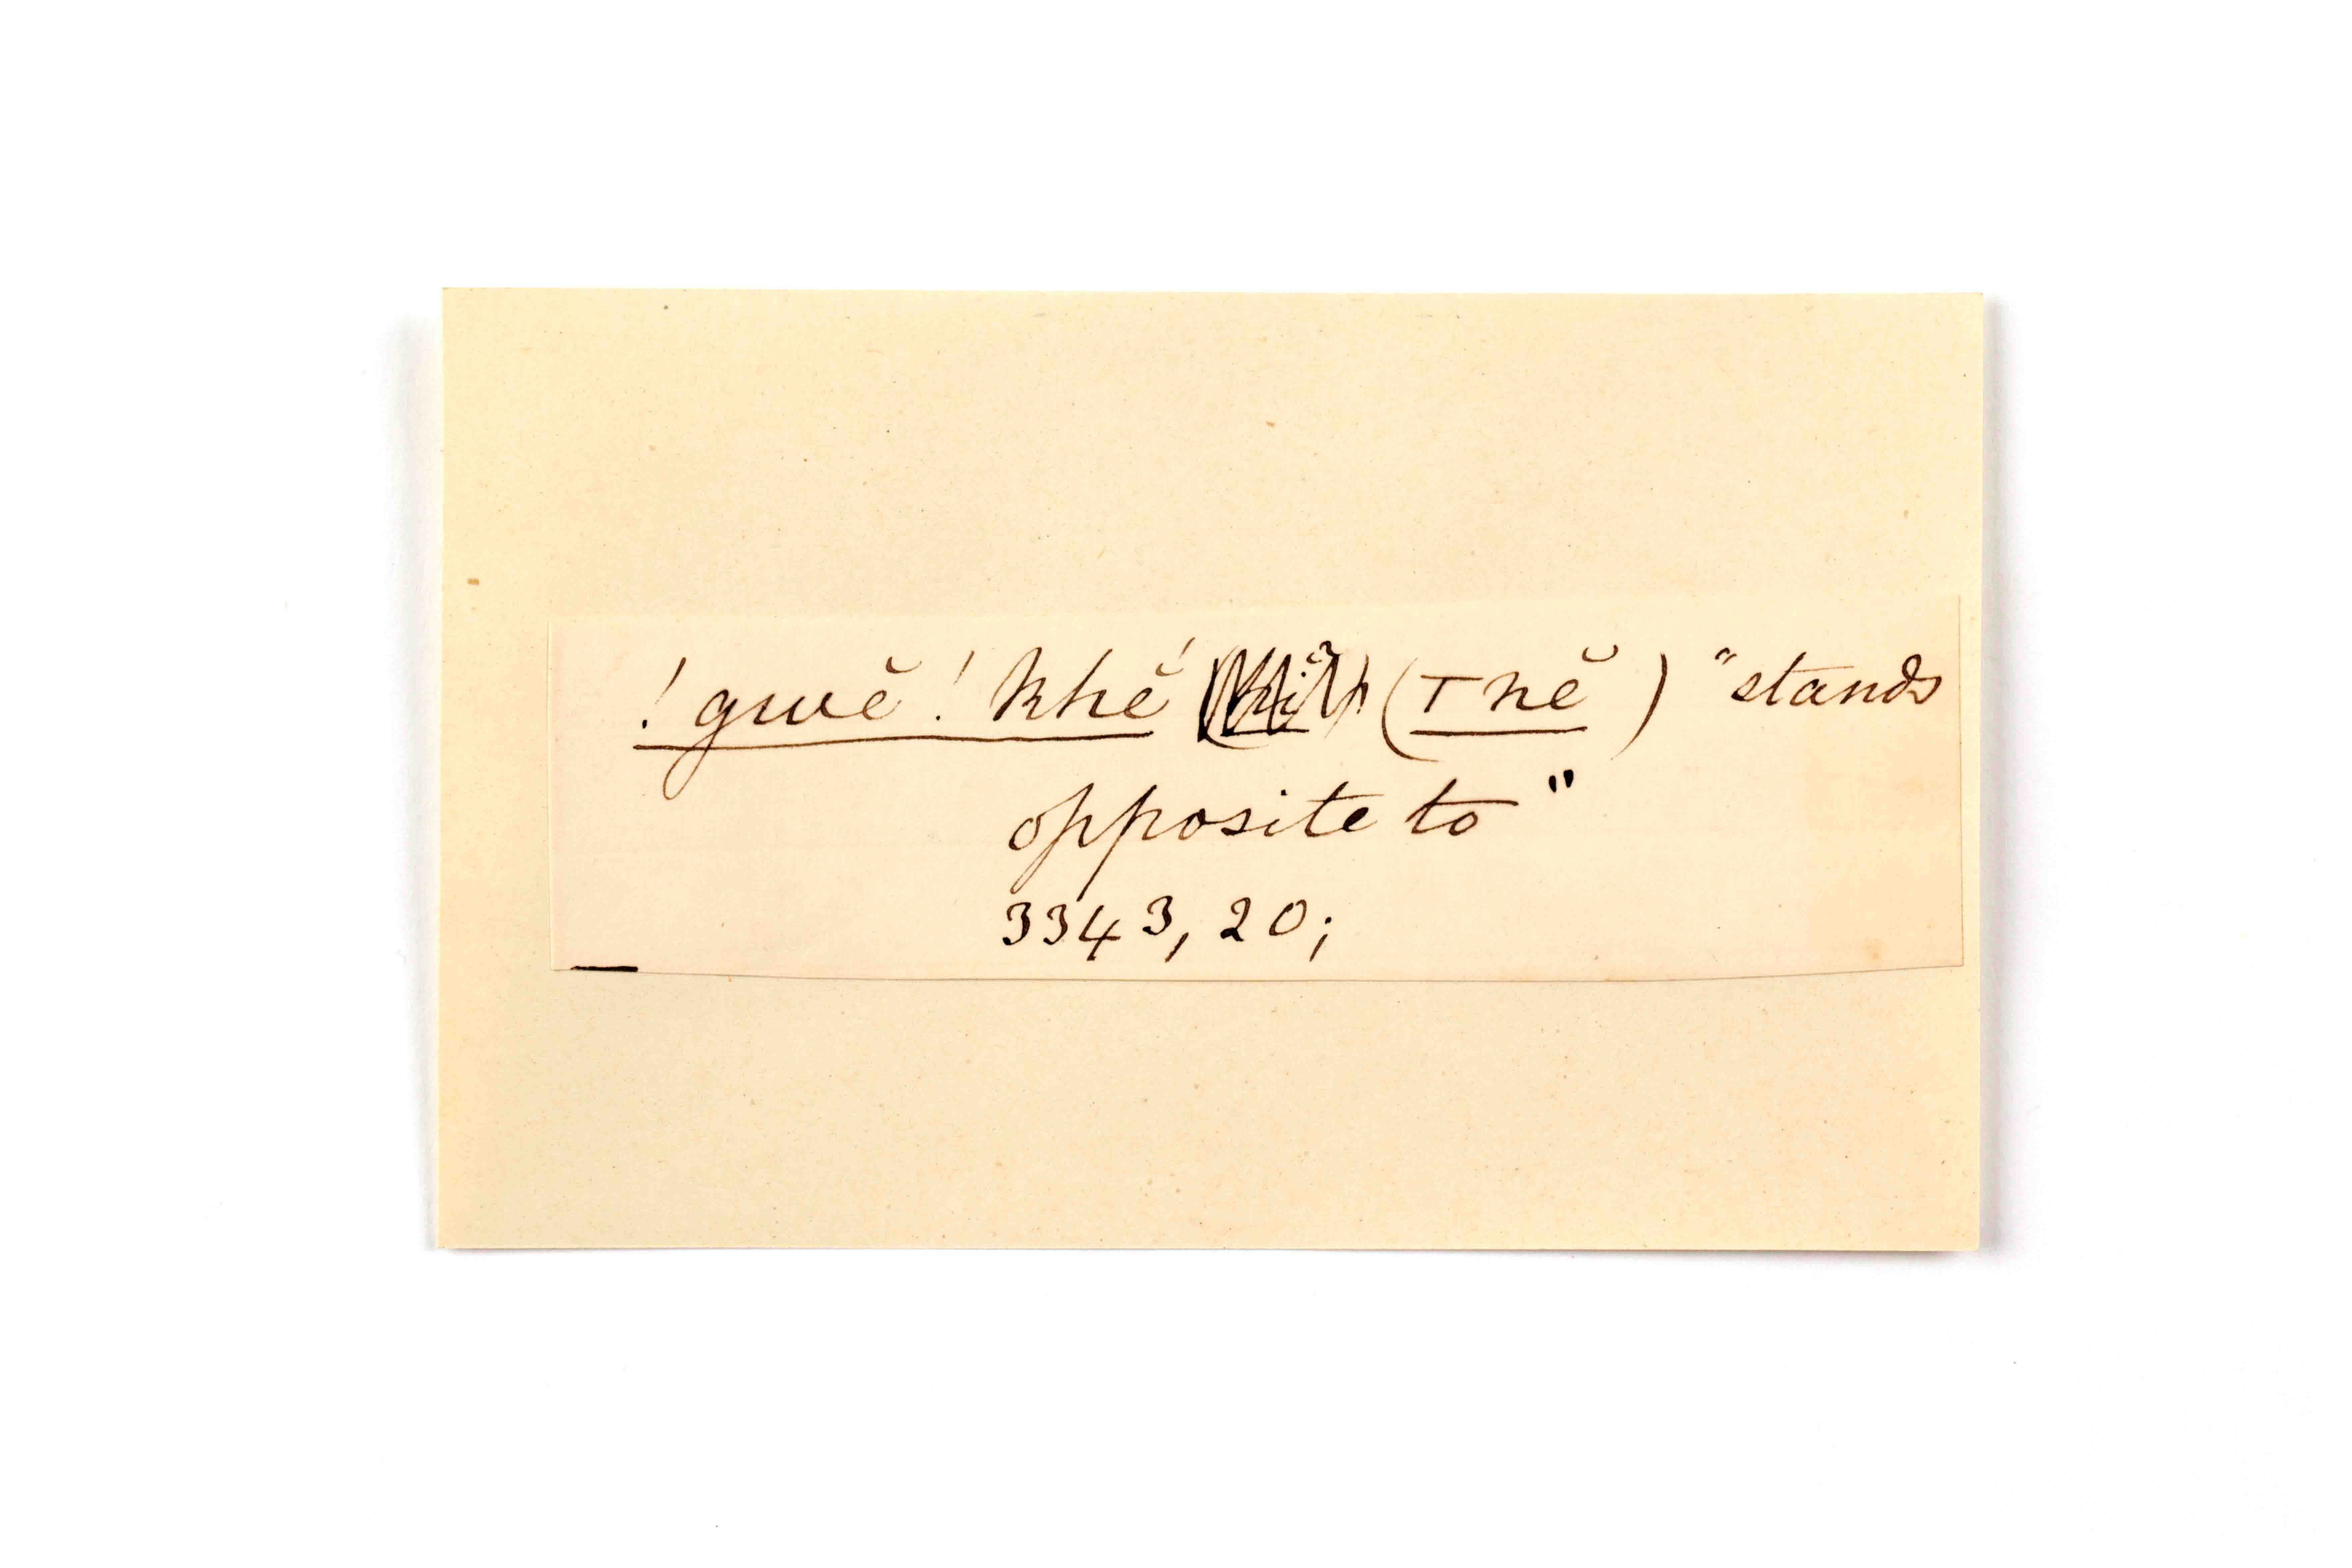 !gwĕ!khé (Tnĕ) "stands
opposite to"
3343, 20;